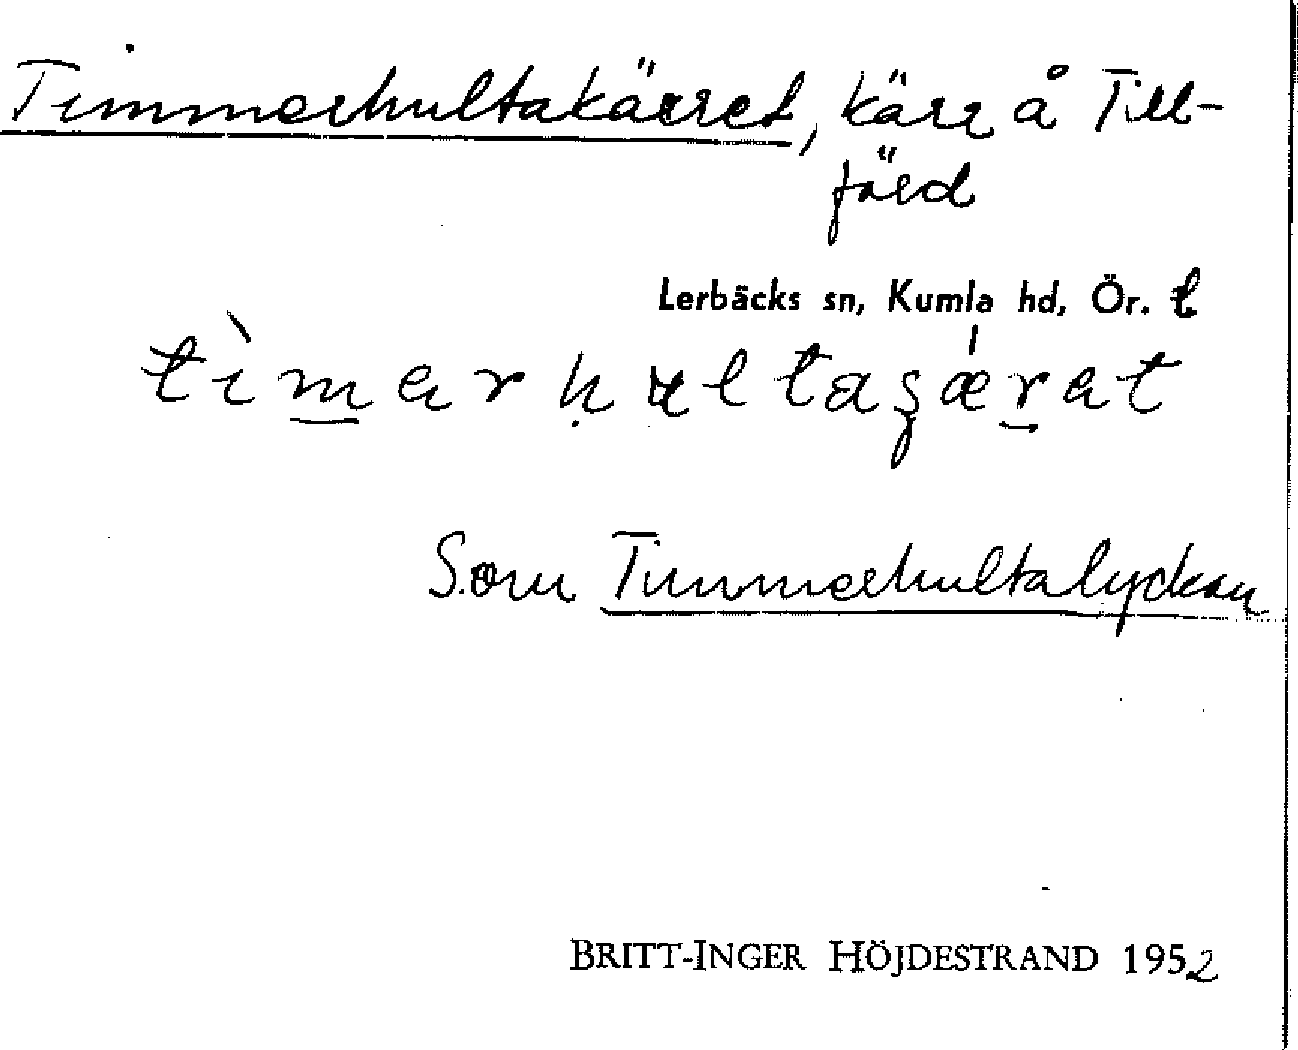 Timmerhultakärret, kärr å Till-
färd
Lerbäcks sn, Kumla hd, Ör. t
tìmarḥultaʂǽrat
S.om Timmerhultalyckan
BRITT-INGER HÖJDESTRAND 1952